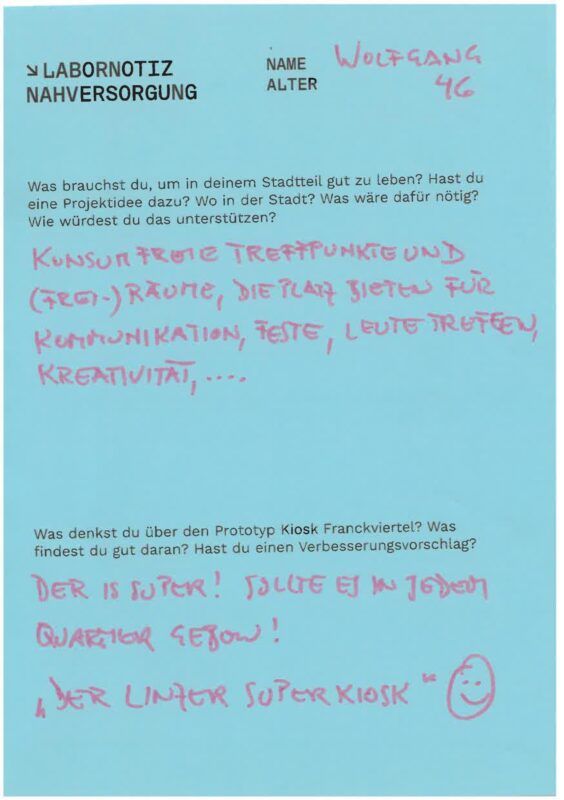 ↘ LABORNOTIZ
NAHVERSORGUNG
NAME WOLFGANG
ALTER 46
Was brauchst du, um in deinem Stadtteil gut zu leben? Hast du
eine Projektidee dazu? Wo in der Stadt? Was wäre dafür nötig?
Wie würdest du das unterstützen?
KONSUMFREIE TREFFPUNKTE UND
(FREI-) RÄUME, DIE PLATZ BIETEN FÜR
KOMMUNIKATION, FESTE, LEUTE TREFFEN,
KREATIVITÄT, ....
Was denkst du über den Prototyp Kiosk Franckviertel? Was
findest du gut daran? Hast du einen Verbesserungsvorschlag?
DER IS SUPER! SOLLTE ES IN JEDEM
QUARTIER GEBEN!
„DER LINZER SUPERKIOSK“